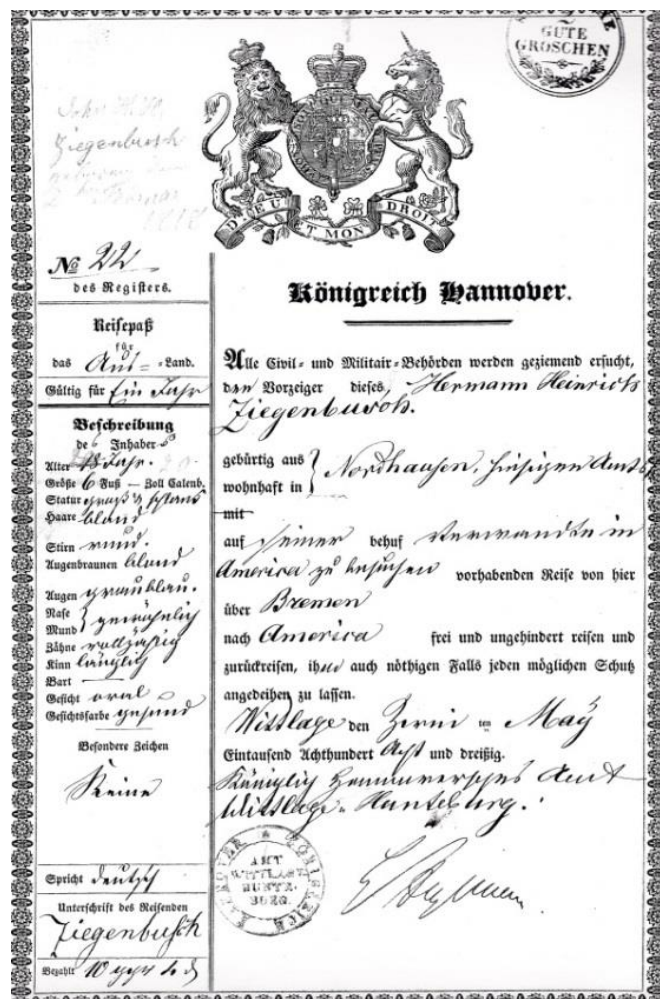 GUTE
GROSCHEN
DIEU ET MON DROIT
Ziegenbusch
No 22
des Registers.
Reisepaß
für
das Aus= =Land.
Gültig für Ein Jahr
Beschreibung
des Inhabers
Alter 18 Jahr.
Größe 6 Fuß — Zoll Calenb.
Statur groß & schlank
Haare blond
Stirn rund.
Augenbraunen blond
Augen graublau.
Nase
Mund } gewöhnlich
Zähne vollzählig
Kinn länglich
Bart —
Gesicht oval
Gesichtsfarbe gesund
Besondere Zeichen
Keine
Spricht deutsch
Unterschrift des Reisenden
Ziegenbusch
Bezahlt 10 ggr
Königreich Hannover.
Alle Civil= und Militair=Behörden werden geziemend ersucht,
den Vorzeiger dieses, Hermann Heinrich
Ziegenbusch.
gebürtig aus
wohnhaft in } Nordhausen, hiesigen Amts
mit
auf seiner behuf Verwandte in
America zu besuchen vorhabenden Reise von hier
über Bremen
nach America frei und ungehindert reisen und
zurückreisen, ihm auch nöthigen Falls jeden möglichen Schutz
angedeihen zu lassen.
Wittlage den ten May
Eintausend Achthundert Acht und dreißig.
Königlich Hannoversches Amt
Wittlage-Hunteburg.
KÖNIGREICH HANNOVER
AMT
WITTLAGE
HUNTE-
BURG.